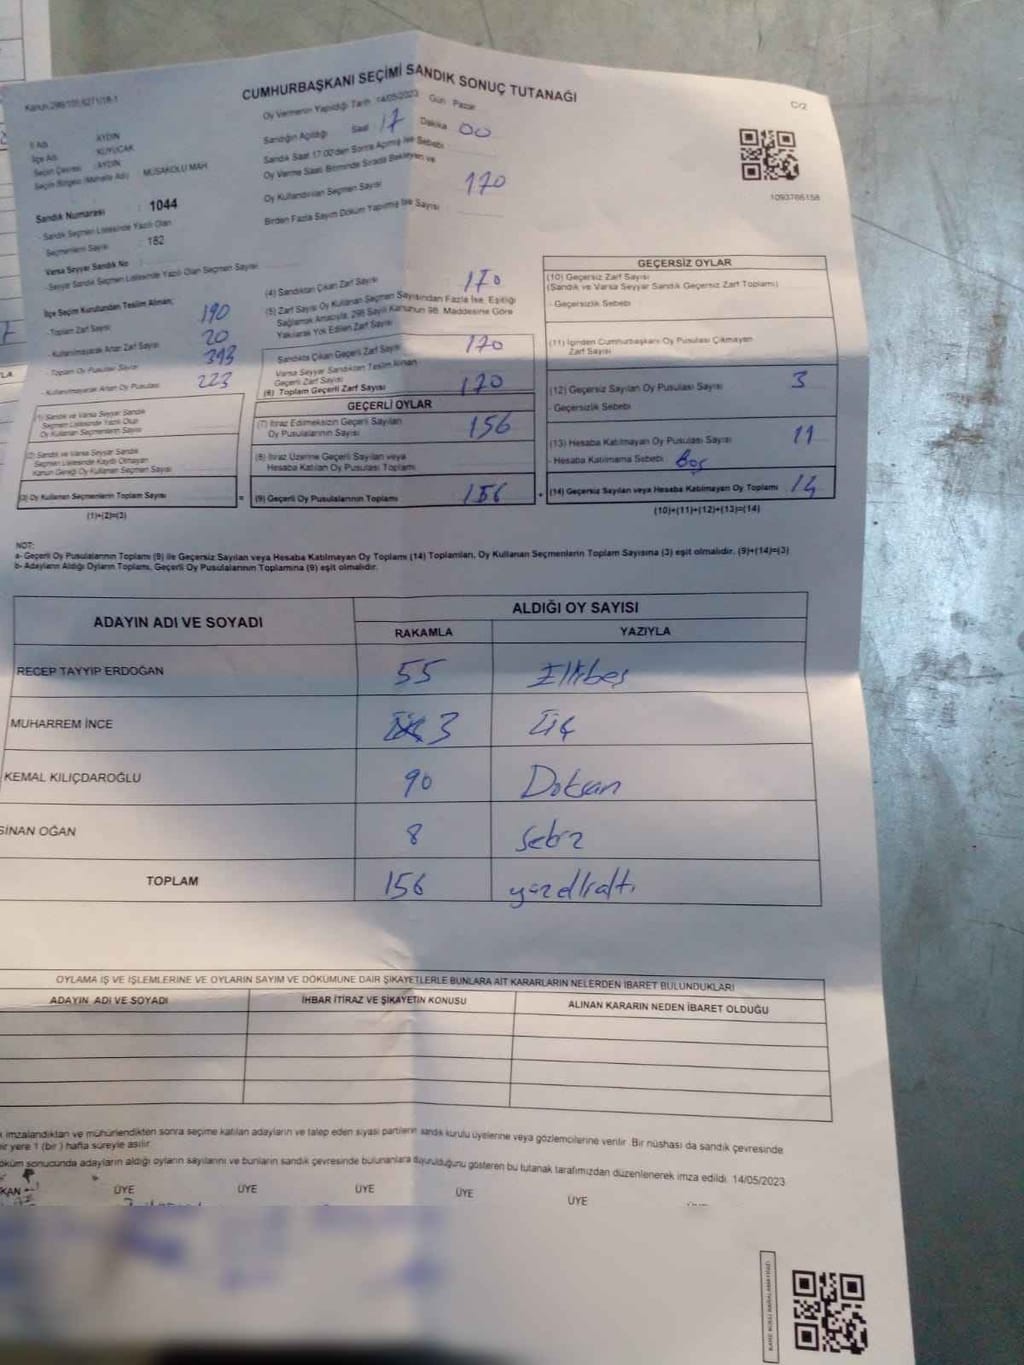 Kanun:298/105,6271/18-1
CUMHURBAŞKANI SEÇİMİ SANDIK SONUÇ TUTANAĞI
C/2
Oy Vermenin Yapıldığı Tarih 14/05/2023 Gün Pazar
İl Adı AYDIN
İlçe Adı KUYUCAK
Seçim Çevresi : AYDIN
Seçim Bölgesi (Mahalle Adı) MUSAKOLU MAH.
Sandığın Açıldığı Saat 17 Dakika 00
Sandık Saat 17:00'den Sonra Açılmış İse Sebebi
Oy Verme Saati Bitiminde Sırada Bekleyen ve
Oy Kullandırılan Seçmen Sayısı 170
Birden Fazla Sayım Döküm Yapılmış İse Sayısı
1093766158
Sandık Numarası : 1044
Sandık Seçmen Listesinde Yazılı Olan
Seçmenlerin Sayısı : 182
Varsa Seyyar Sandık No
- Seyyar Sandık Seçmen Listesinde Yazılı Olan Seçmen Sayısı
İlçe Seçim Kurulundan Teslim Alınan;
- Toplam Zarf Sayısı 190
- Kullanılmayarak Artan Zarf Sayısı 20
- Toplam Oy Pusulası Sayısı 393
- Kullanılmayarak Artan Oy Pusulası 223
(1) Sandık ve Varsa Seyyar Sandık
Seçmen Listesinde Yazılı Olup
Oy Kullanan Seçmenlerin Sayısı
(2) Sandık ve Varsa Seyyar Sandık
Seçmen Listesinde Kaydı Olmayan
Kanun Gereği Oy Kullanan Seçmen Sayısı
(3) Oy Kullanan Seçmenlerin Toplam Sayısı =
(1)+(2)=(3)
(4) Sandıktan Çıkan Zarf Sayısı 170
(5) Zarf Sayısı Oy Kullanan Seçmen Sayısından Fazla İse, Eşitliği
Sağlamak Amacıyla, 298 Sayılı Kanunun 98. Maddesine Göre
Yakılarak Yok Edilen Zarf Sayısı
Sandıkta Çıkan Geçerli Zarf Sayısı 170
Varsa Seyyar Sandıktan Teslim Alınan
Geçerli Zarf Sayısı
(6) Toplam Geçerli Zarf Sayısı 170
GEÇERLİ OYLAR
(7) İtiraz Edilmeksizin Geçerli Sayılan
Oy Pusulalarının Sayısı 156
(8) İtiraz Üzerine Geçerli Sayılan veya
Hesaba Katılan Oy Pusulası Toplamı
(9) Geçerli Oy Pusulalarının Toplamı 156 +
GEÇERSİZ OYLAR
(10) Geçersiz Zarf Sayısı
(Sandık ve Varsa Seyyar Sandık Geçersiz Zarf Toplamı)
- Geçersizlik Sebebi
(11) İçinden Cumhurbaşkanı Oy Pusulası Çıkmayan
Zarf Sayısı
(12) Geçersiz Sayılan Oy Pusulası Sayısı 3
- Geçersizlik Sebebi
(13) Hesaba Katılmayan Oy Pusulası Sayısı 11
- Hesaba Katılmama Sebebi Boş
(14) Geçersiz Sayılan veya Hesaba Katılmayan Oy Toplamı 14
(10)+(11)+(12)+(13)=(14)
NOT:
a- Geçerli Oy Pusulalarının Toplamı (9) ile Geçersiz Sayılan veya Hesaba Katılmayan Oy Toplamı (14) Toplamları, Oy Kullanan Seçmenlerin Toplam Sayısına (3) eşit olmalıdır. (9)+(14)=(3)
b- Adayların Aldığı Oyların Toplamı, Geçerli Oy Pusulalarının Toplamına (9) eşit olmalıdır.
ADAYIN ADI VE SOYADI
ALDIĞI OY SAYISI
RAKAMLA YAZIYLA
RECEP TAYYİP ERDOĞAN 55 Ellibeş
MUHARREM İNCE 3 Üç
KEMAL KILIÇDAROĞLU 90 Doksan
SİNAN OĞAN 8 Sekiz
TOPLAM 156 yüzellialtı
OYLAMA İŞ VE İŞLEMLERİNE VE OYLARIN SAYIM VE DÖKÜMÜNE DAİR ŞİKAYETLERLE BUNLARA AİT KARARLARIN NELERDEN İBARET BULUNDUKLARI
ADAYIN ADI VE SOYADI İHBAR İTİRAZ VE ŞİKAYETİN KONUSU ALINAN KARARIN NEDEN İBARET OLDUĞU
imzalandıktan ve mühürlendikten sonra seçime katılan adayların ve talep eden siyasi partilerin sandık kurulu üyelerine veya gözlemcilerine verilir. Bir nüshası da sandık çevresinde
bir yere 1 (bir) hafta süreyle asılır.
döküm sonucunda adayların aldığı oyların sayılarını ve bunların sandık çevresinde bulunanlara duyurulduğunu gösteren bu tutanak tarafımızdan düzenlenerek imza edildi. 14/05/2023
KAN ÜYE ÜYE ÜYE ÜYE ÜYE